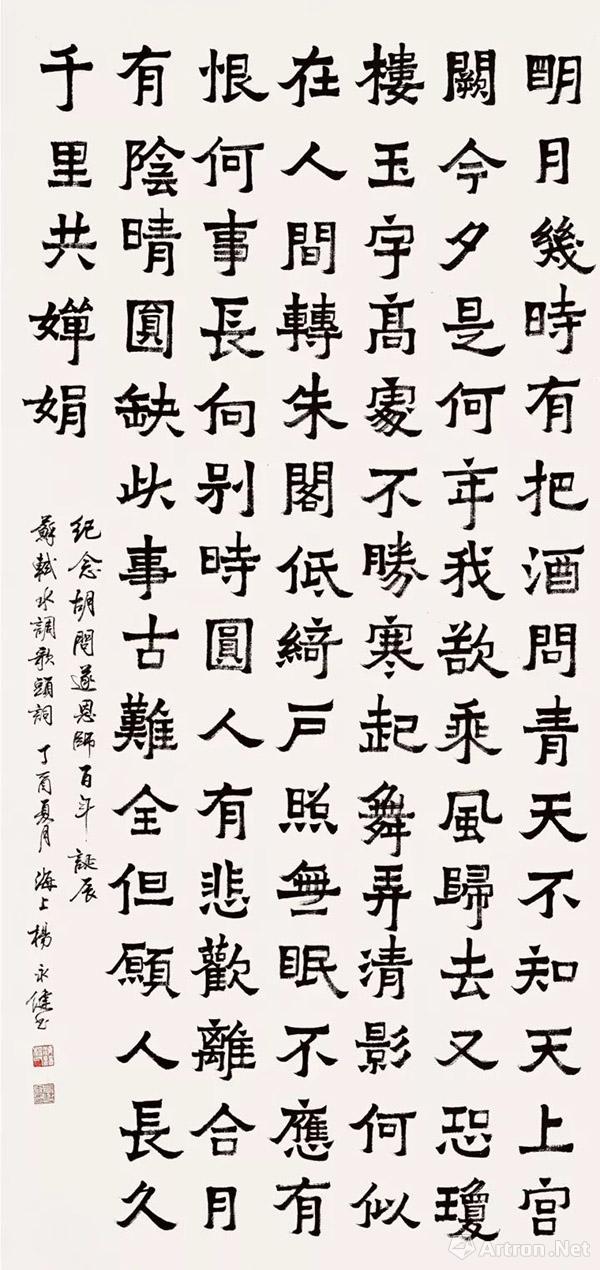 明月幾時有把酒問青天不知天上宮
闕今夕是何年我欲乘風歸去又恐瓊
樓玉宇髙處不勝寒起舞弄清影何似
在人間轉朱閣低綺戶照無眠不應有
恨何事長向別時圓人有悲歡離合月
有陰晴圓缺此事古難全但願人長久
千里共嬋娟
紀念胡問遂恩師百年誕辰
蘇軾水調歌頭詞 丁酉夏月 海上楊永健書
Artron.Net